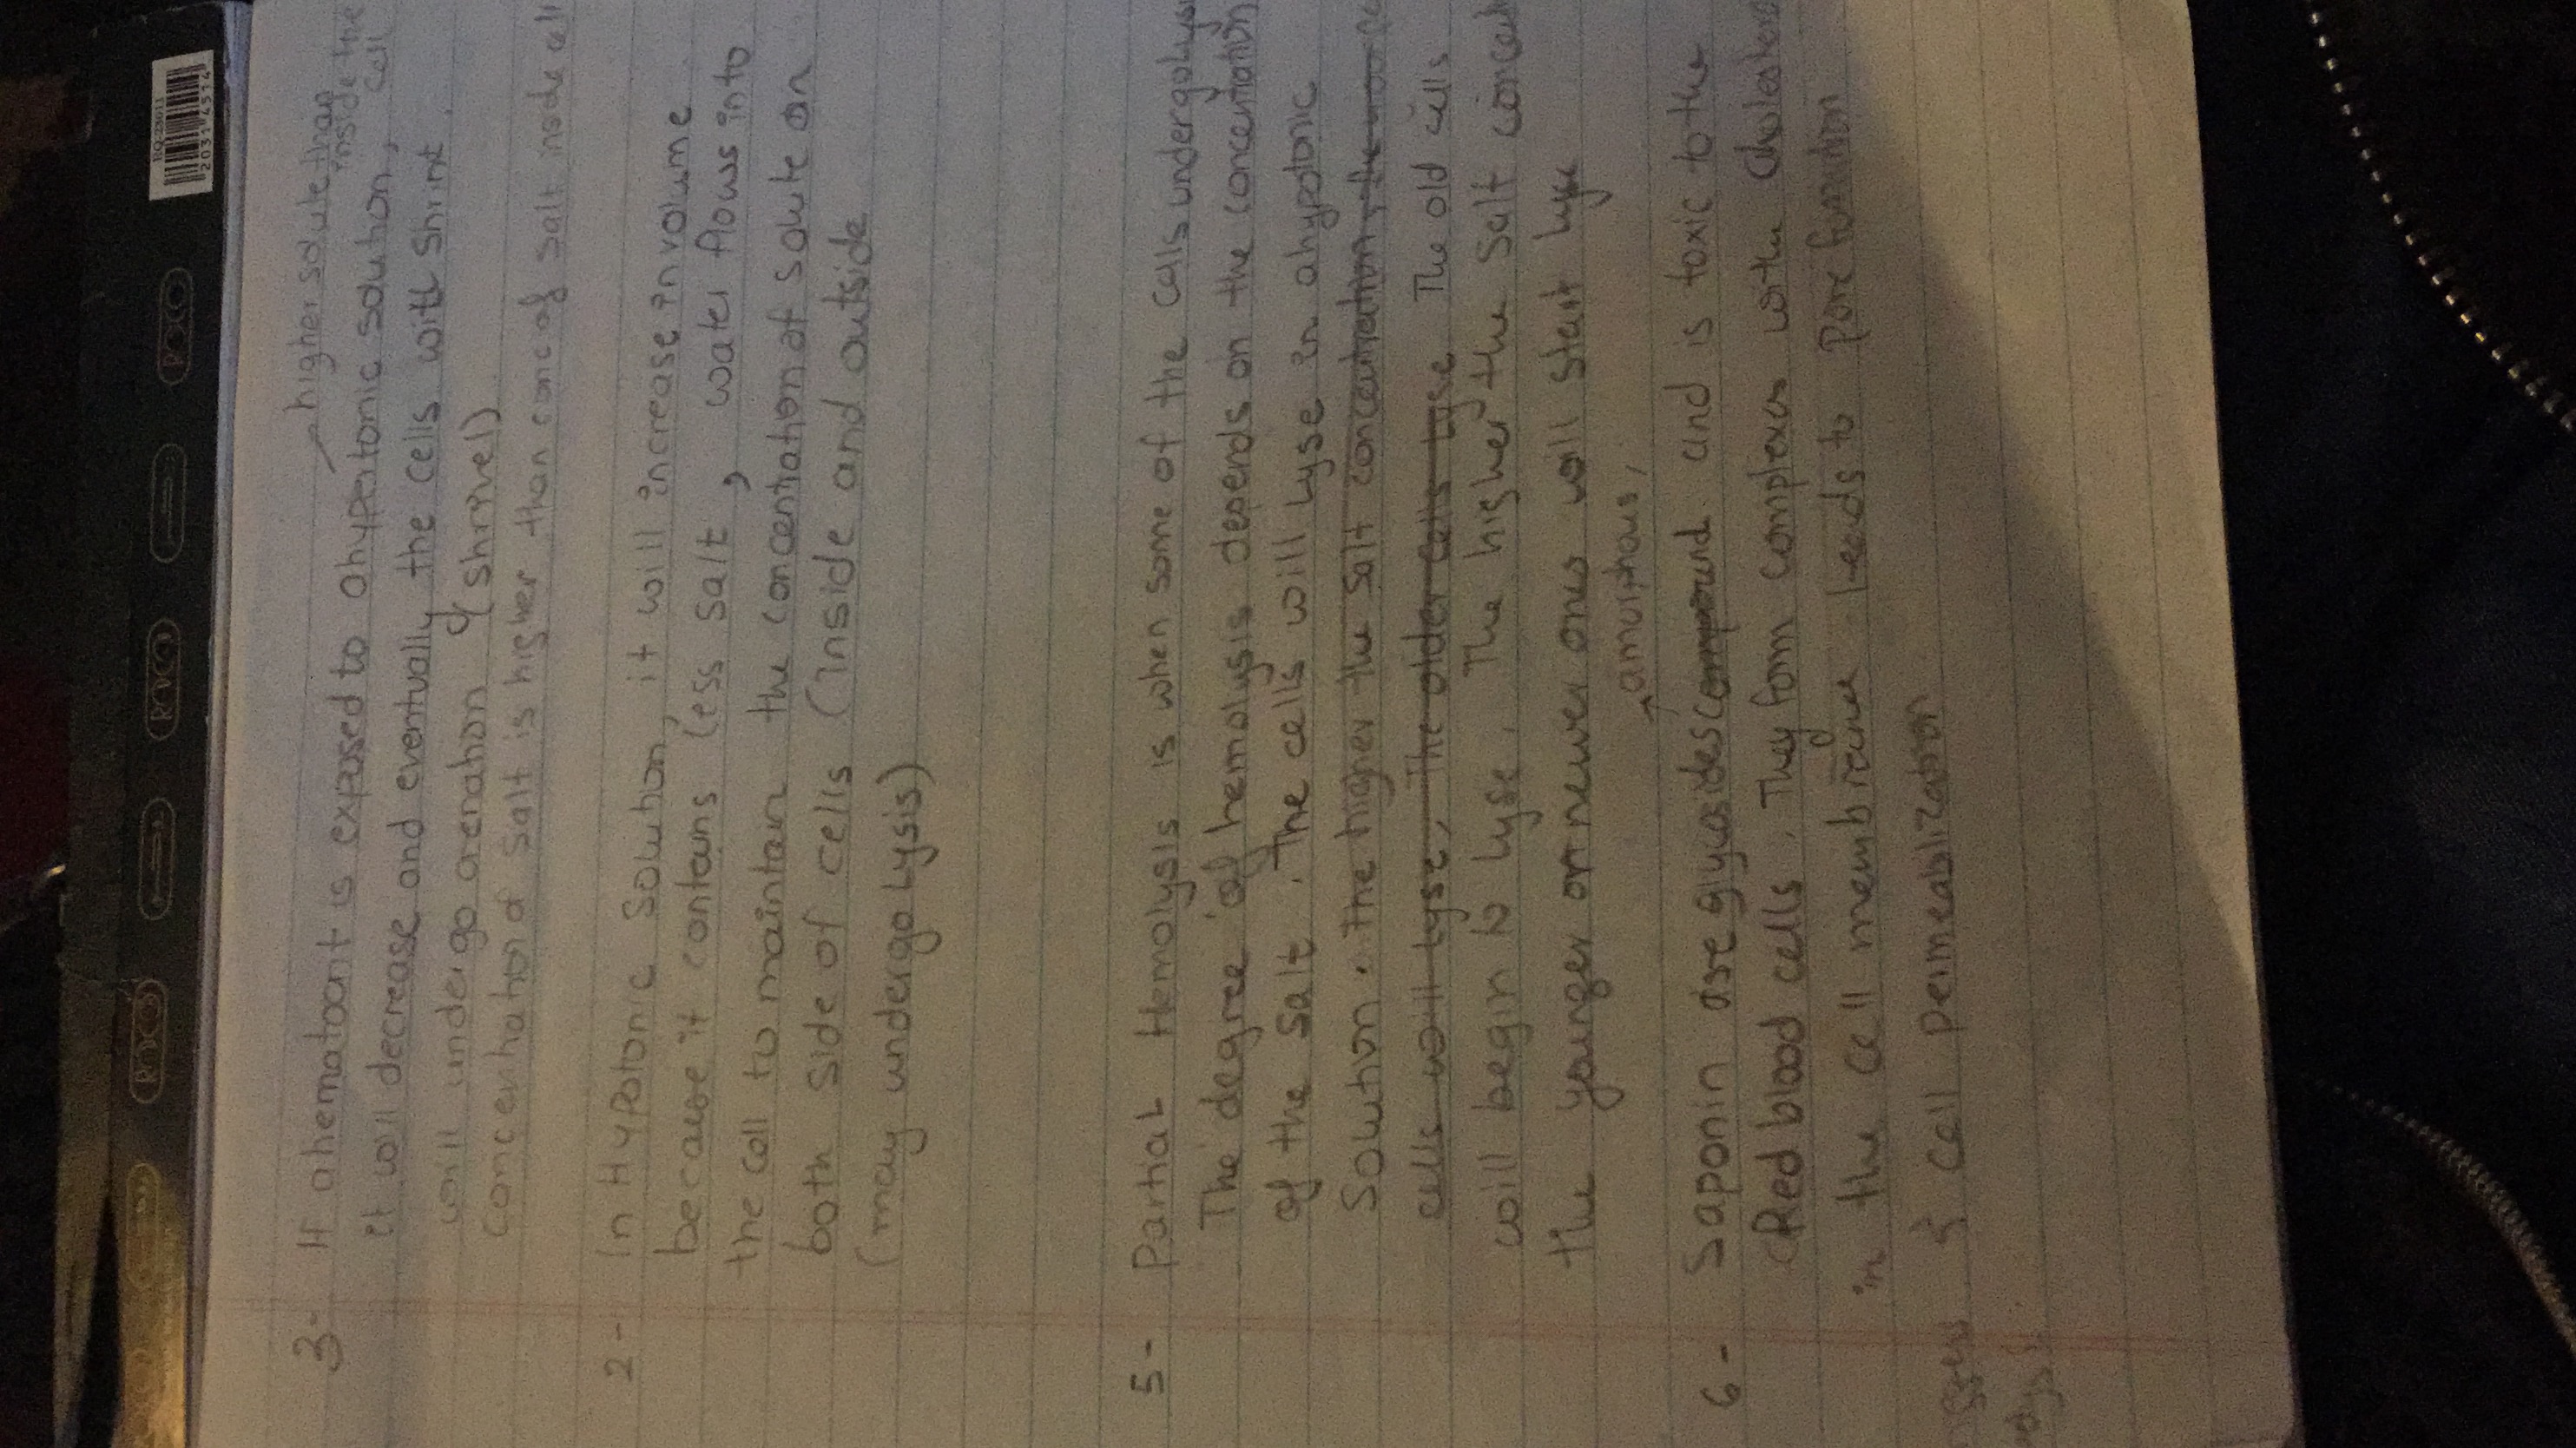 RQ-23011
2031 4514
higher solute than
inside the
cell
3- If a hematocrit is exposed to a hypertonic solution,
it will decrease and eventually the cells with shrink.
will undergo crenation (shrivel)
concentration of salt is higher than conc of salt inside cell
2- In Hypotonic Solution, it will increase in volume
because it contains less salt, water flows into
the cell to maintain the concentration of solute on
both side of cells (inside and outside
(may undergo Lysis)
5- Partial Hemolysis is when some of the cells undergo Lysi
The degree of hemolysis depends on the concentration
of the salt. The cells will lyse in a hypotonic
Solution. the higher the salt concentration, the
cells will lyse, the older cells lyse. The old cells
will begin to lyse. The higher the salt concent
the younger or newer ones will start lyse
amorphous,
6- Saponin are glycosides compound and is toxic to the
Red blood cells. They form complexes with cholesterol
in the cell membrane leads to pore function
& cell permeabilization